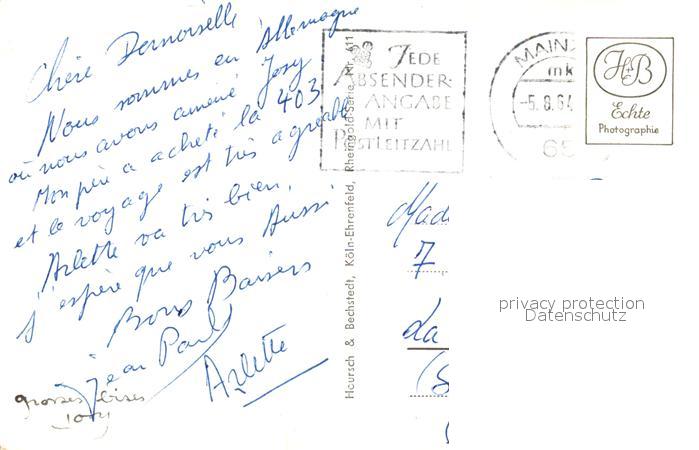 Chère Demoiselle
Nous sommes en Allemagne
où nous avons amené Josy
Mon père a acheté la 403
et le voyage est très agréable
Arlette va très bien,
j'espère que vous Aussi
Bons Baisers
Jean Paul
Arlette
grosses bises
Josy
JEDE
ABSENDER-
ANGABE
MIT
POSTLEITZAHL
MAINZ
mk
-5.8.64
65
H&B
Echte
Photographie
Hoursch & Bechstedt, Köln-Ehrenfeld, Rheingold-Serie Nr. 611
Mad
7
La
privacy protection
Datenschutz